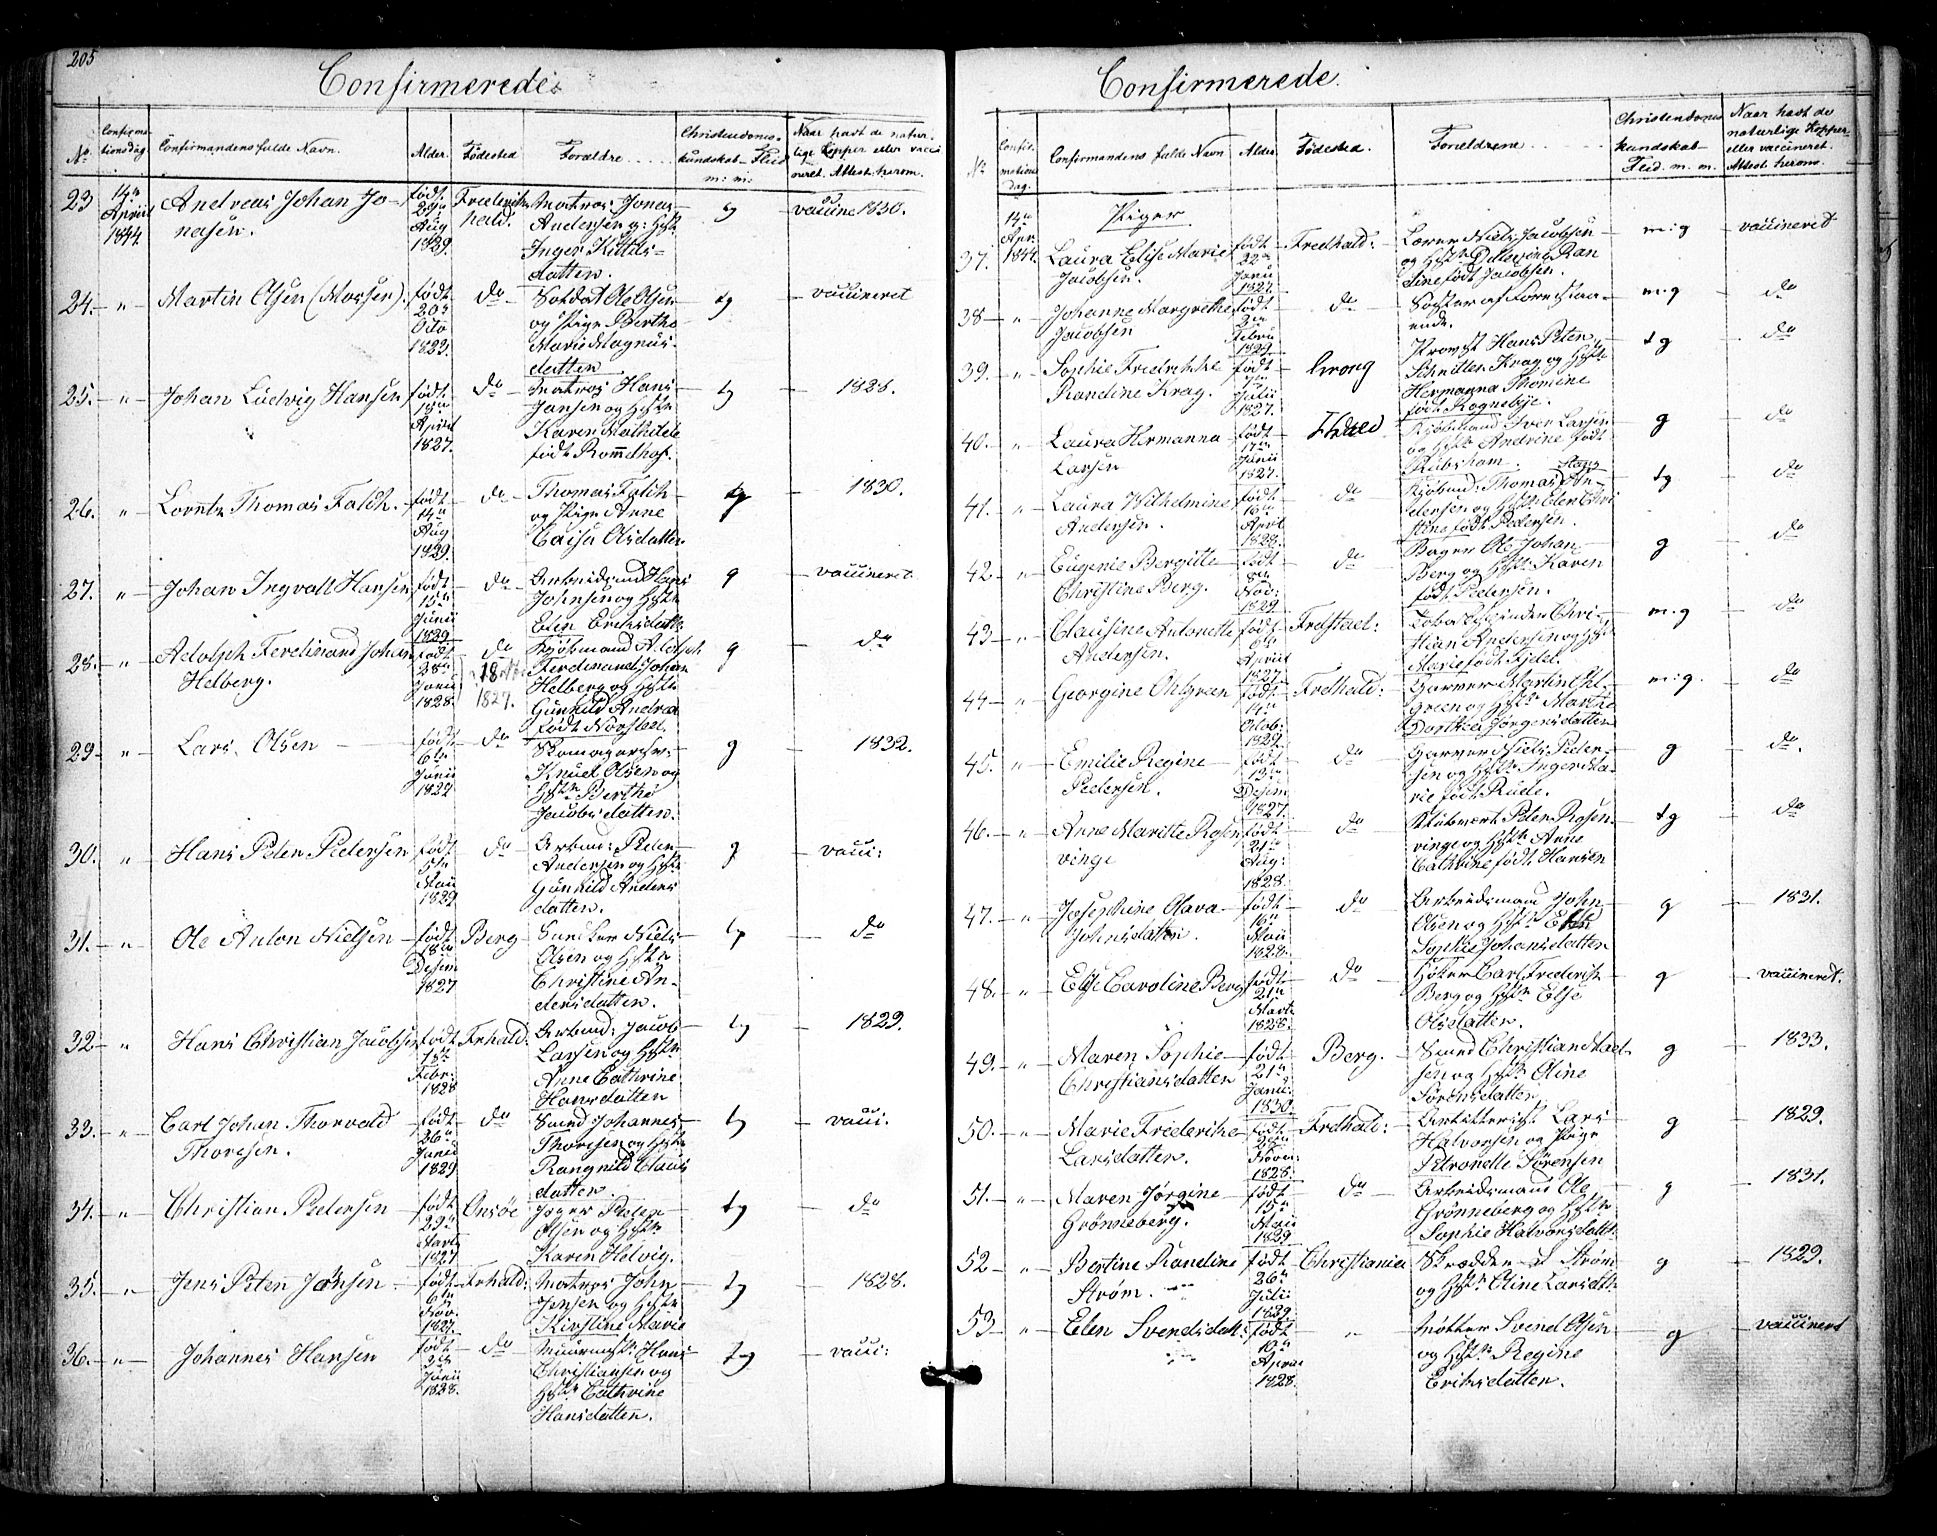 205
Confirmerede
No. Confirmationsdag. Confirmandens fulde Navn. Alder. Fødested Forældre Christendomskundskab Flid m: m: Naar havt de naturlige Kopper eller vaccineret. Attest. herom.
23 14de April 1844. Andreas Johan Jonasen. født 29de Aug 1829. Frederikshald. Matros Jonas Andersen og Hst: Inger Kittelsdatter. g vaccine 1830.
24. " Martin Olsen (Mossen). født 20de Octo 1823. do Soldat Ole Olsen og Pige Berthe Marie Magnusdatter tg vaccineret
25. " Johan Ludvig Hansen født 18de April 1827. do Matros Hans Jansen og Hstr Karen Mathilde født Rommelhof. tg 1828.
26. " Lorentz Thomas Falch. født 14de Aug 1829. do Thomas Falch og Pige Anne Caisa Olsdatter tg 1830.
27. " Johan Ingvald Hansen født 15de Junii 1829 do Arbeidsmd Hans Johnsen og Hstr Elen Erichsdattr: g vaccineret
28. " Adolph Ferdinand Johan Helberg. født 28de Junii 1828. do 18 1827. Kjøbmand Adolph Ferdinand Johan Helberg og Hstr Gunhild Andrea født Norsted. g do
29. " Lars Olsen født 6te Junii 1829 do Skomagersv: Knud Olsen og Hstr Berthe Jacobsdatter. g 1832.
30. " Hans Peter Pedersen født 5te Maii 1829. do Arbmd: Peder Andersen og Hstr Gunhild Andersdatter. g vacci:
31. " Ole Anton Nielsen født 18de Desem 1827 Berg Snecker Niels Olsen og Hstr Christine Andersdatter. tg do
32 " Hans Christian Jacobsen født 18de Febr: 1828 Frhald. Arbmd: Jacob Larsen og Hstr Anne Cathrine Hansdatter tg 1829.
33. " Carl Johan Thorvald Thoresen. født 26de Junii 1829 do Smed Johannes Thoresen og Hstr Rangnild Clausdatter. tg vacci.
34. " Christian Pedersen født 29de Marts 1827 Onsøe Jæger Peder Olsen og Hstr Karen Helvig. tg do
35. " Jens Peter Jansen født 6te Nov. 1827. Frhald: Matros John Jensen og Hstr Kirstine Marie tg 1828.
36. " Johannes Hansen født Junii 1828. do Muurmstr. Hans Christiansen og Hstr Cathrine Hansdatter. tg vacci:
Confirmerede.
No Confirmationsdag. Confirmandens fulde Navn Alder Fødested. Forældrene Christendomskundskab Flid. m. m. Naar havt de naturlige Kopper eller vaccineret. Attest. herom.
14de Apr. 1844. Piger
37. Laura Elise Marie Jacobsen. født 22de Janu 1827. Fredhald: Lærer Niels Jacobsen og Hstr født Jacobsen. m:g vaccineret
38 " Johanne Margrethe Jacobsen født 2den Febru 1829 do Søster af forestaaende. m:g do
39. " Sophie Fredrikke Randine Krag. født 7de Julii 1827. Grong Provst Hans Peter Schnitler Krag og Hstr Hermanna Thomine født Rognebye. tg do
40. " Laura Hermanna Larsen født 17de Junii 1827. Fhald Kjøbmand Iver Larsen og Hstr Andrine født Kubsham. g do
41. " Laura Wilhelmine Andersen. født 16de April 1828. do Kjøbmd: Thomas Hans Andersen og Hstr: Elen Christine født Pedersen. tg do
42. " Eugenie Bergitte Christine Berg. født 8de Nov: 1829. do Bager Ole Johan Berg og Hstr: Karen født Pedersen. g do
43 " Clausine Antonette Andersen. født April 1827. Fredstad: Tobaksspinder Christian Andersen og Hstr Marie født Fjeld. m:g do
44 " Georgine Ohlgreen født 14de Octob: 1829. Fredhald: Garver Martin Ohlgreen og Hstr Marthe Dorthea Jørgensdatter m:g. do
45. " Emilie Regine Pedersen. født 13de Desem 1827. do Garver Niels Pedersen og Hstr Inger Marie født Rude. g do.
46. " Anne Mariette Rosenvinge født 21de Aug: 1828. do Klubvert Peter Rosenvinge og Hstr Anne Cathrine født Hansen tg do
47. " Josephine Olava Johansdatter. født 16de Maii 1828. do Arbeidsmand John Olsen og Hstr Elen Sophie Johansdatter g 1831.
48. " Else Caroline Berg født 21de Marts 1828. do Høker Carl Frederich Berg og Hstr Else Olsdatter. g vaccineret.
49. " Maren Sophie Christiansdatter født 21de Janu: 1830. Berg. Smed Christian og Hstr Oline Sørensdatter. g 1833.
50. " Marie Frederikke Larsdatter. født Novr: 1828. Fredhald: Artillerist Lars Halvorsen og Pige Petronelle Sørensen g 1829.
51. " Maren Jørgine Grønneberg. født 15de Maii 1829 do Arbeidsmand Ole Grønneberg og Hstr Sophie Halvorsdatt: g 1831.
52 " Bertine Randine Strøm. født 26de Juli: 1829. Christiania Skrædder Strøm og Hstr Oline Larsdttr g 1829.
53 " Elen Svendsdatt: født 10de April 1828. " Møller Svend Olsen og Hstr Regine Eriksdatter. g vaccineret